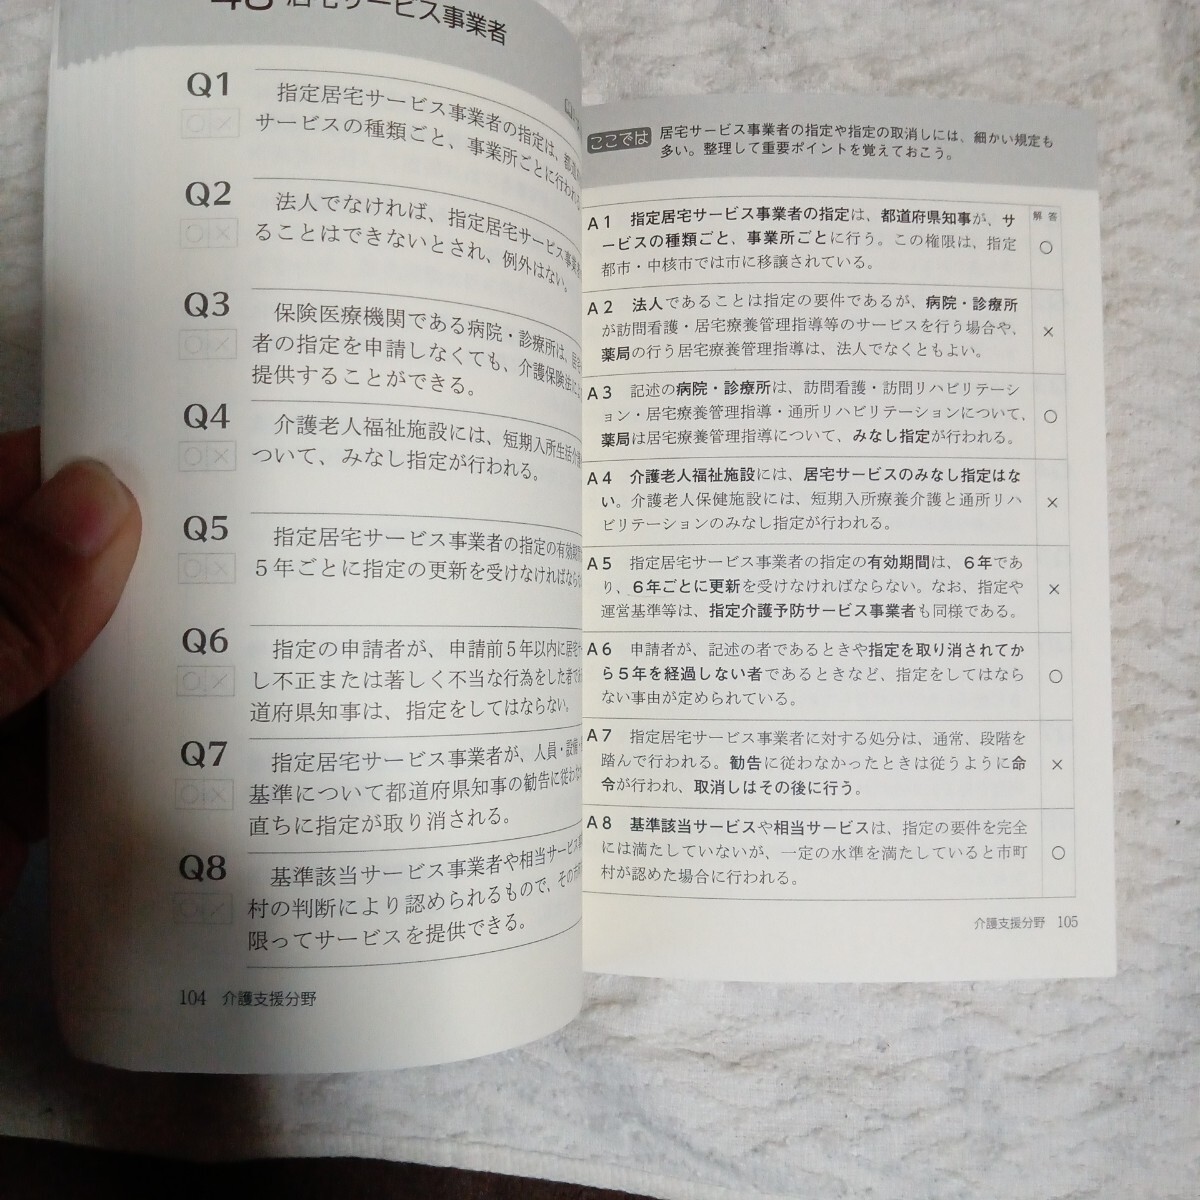 居宅サービス事業者
Q1
○ ×
指定居宅サービス事業者の指定は、都
サービスの種類ごと、事業所ごとに行われ
Q2
○ ×
法人でなければ、指定居宅サービス事業
ることはできないとされ、例外はない。
Q3
○ ×
保険医療機関である病院・診療所は、
者の指定を申請しなくても、介護保険法に
提供することができる。
Q4
○ ×
介護老人福祉施設には、短期入所生活介
ついて、みなし指定が行われる。
Q5
○ ×
指定居宅サービス事業者の指定の有効期
5年ごとに指定の更新を受けなければなら
Q6
○ ×
指定の申請者が、申請前5年以内に居宅
し不正または著しく不当な行為をした者で
道府県知事は、指定をしてはならない。
Q7
○ ×
指定居宅サービス事業者が、人員・設備
基準について都道府県知事の勧告に従わな
直ちに指定が取り消される。
Q8
○ ×
基準該当サービス事業者や相当サービス
村の判断により認められるもので、その市
限ってサービスを提供できる。
104 介護支援分野
ここでは 居宅サービス事業者の指定や指定の取消しには、細かい規定も
多い。整理して重要ポイントを覚えておこう。
解 答
A1 指定居宅サービス事業者の指定は、都道府県知事が、サ
ービスの種類ごと、事業所ごとに行う。この権限は、指定
都市・中核市では市に移譲されている。
○
A2 法人であることは指定の要件であるが、病院・診療所
が訪問看護・居宅療養管理指導等のサービスを行う場合や、
薬局の行う居宅療養管理指導は、法人でなくともよい。
×
A3 記述の病院・診療所は、訪問看護・訪問リハビリテーシ
ョン・居宅療養管理指導・通所リハビリテーションについて、
薬局は居宅療養管理指導について、みなし指定が行われる。
○
A4 介護老人福祉施設には、居宅サービスのみなし指定はな
い。介護老人保健施設には、短期入所療養介護と通所リハ
ビリテーションのみなし指定が行われる。
×
A5 指定居宅サービス事業者の指定の有効期間は、6年であ
り、6年ごとに更新を受けなければならない。なお、指定や
運営基準等は、指定介護予防サービス事業者も同様である。
×
A6 申請者が、記述の者であるときや指定を取り消されてか
ら5年を経過しない者であるときなど、指定をしてはなら
ない事由が定められている。
○
A7 指定居宅サービス事業者に対する処分は、通常、段階を
踏んで行われる。勧告に従わなかったときは従うように命
令が行われ、取消しはその後に行う。
×
A8 基準該当サービスや相当サービスは、指定の要件を完全
には満たしていないが、一定の水準を満たしていると市町
村が認めた場合に行われる。
○
介護支援分野 105